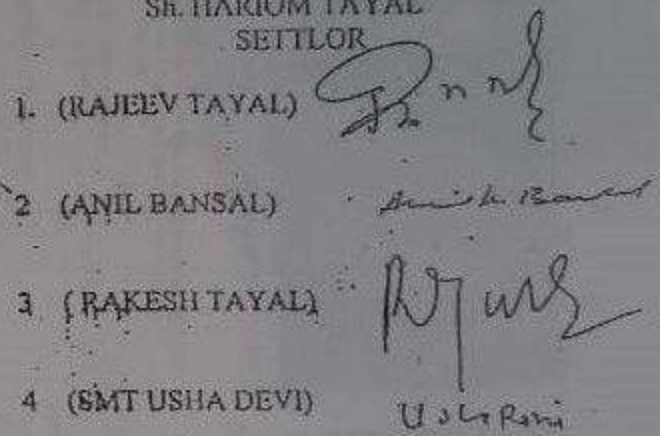 Sh. HARIOM TAYAL
SETTLOR
1. (RAJEEV TAYAL)
2 (ANIL BANSAL) Bansal
3 (RAKESH TAYAL)
4 (SMT USHA DEVI) Usha Rani